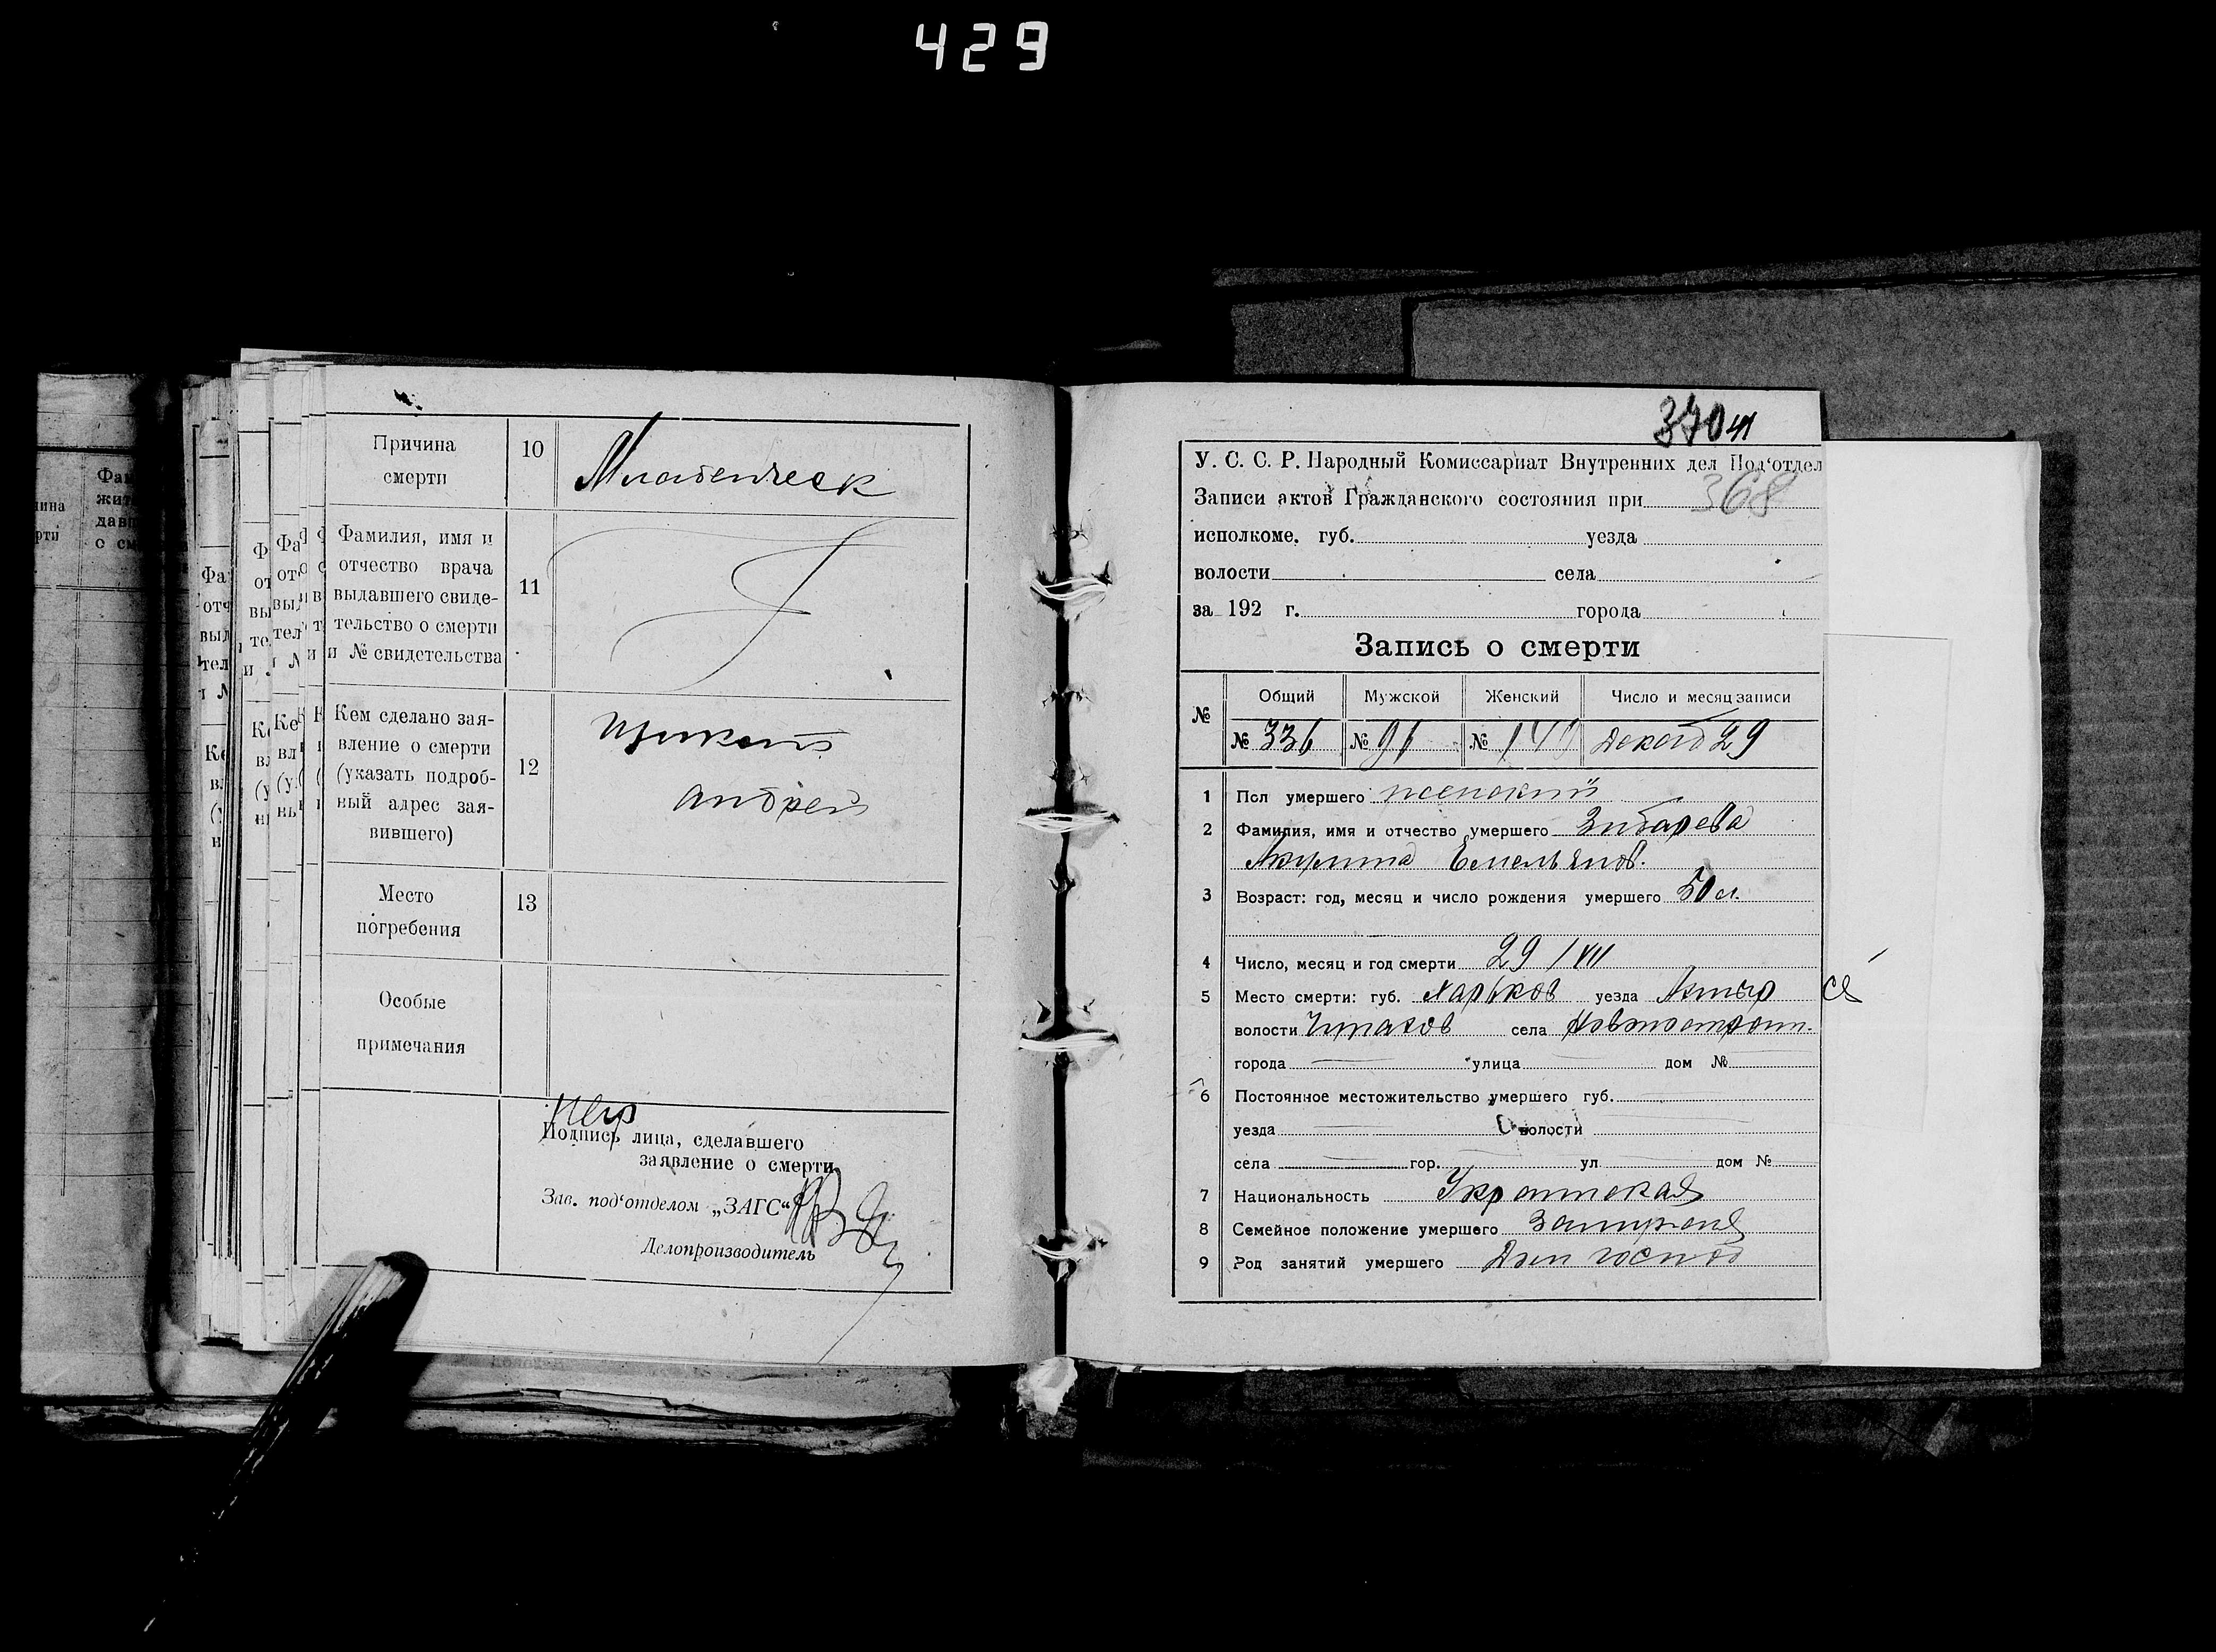 429
Причина
смерти
10
Младенческ
Фамилия, имя и
отчество врача
выдавшего свиде-
тельство о смерти
и № свидетельства
11
Кем сделано зая-
вление о смерти
(указать подроб-
ный адрес зая-
вившего)
12
андрей
Место
погребения
13
Особые
примечания
Подпись лица, сделавшего
заявление о смерти
Зав. под'отделом „ЗАГС“
Делопроизводитель
370
368
У. С. С. Р. Народный Комиссариат Внутренних дел Под'отдел
Записи актов Гражданского состояния при
исполкоме. губ. уезда
волости села
за 192 г. города
Запись о смерти
№ Общий Мужской Женский Число и месяц записи
№ 336 № № Декаб 29
1 Пол умершего женский
2 Фамилия, имя и отчество умершего Зибарева
Акулина Емельянов.
3 Возраст: год, месяц и число рождения умершего 50 л.
4 Число, месяц и год смерти 29
5 Место смерти: губ. Харьков уезда Ахтыр
волости села
города улица дом №
6 Постоянное местожительство умершего губ.
уезда волости
села гор. ул. дом №
7 Национальность Украинская
8 Семейное положение умершего Замужня
9 Род занятий умершего